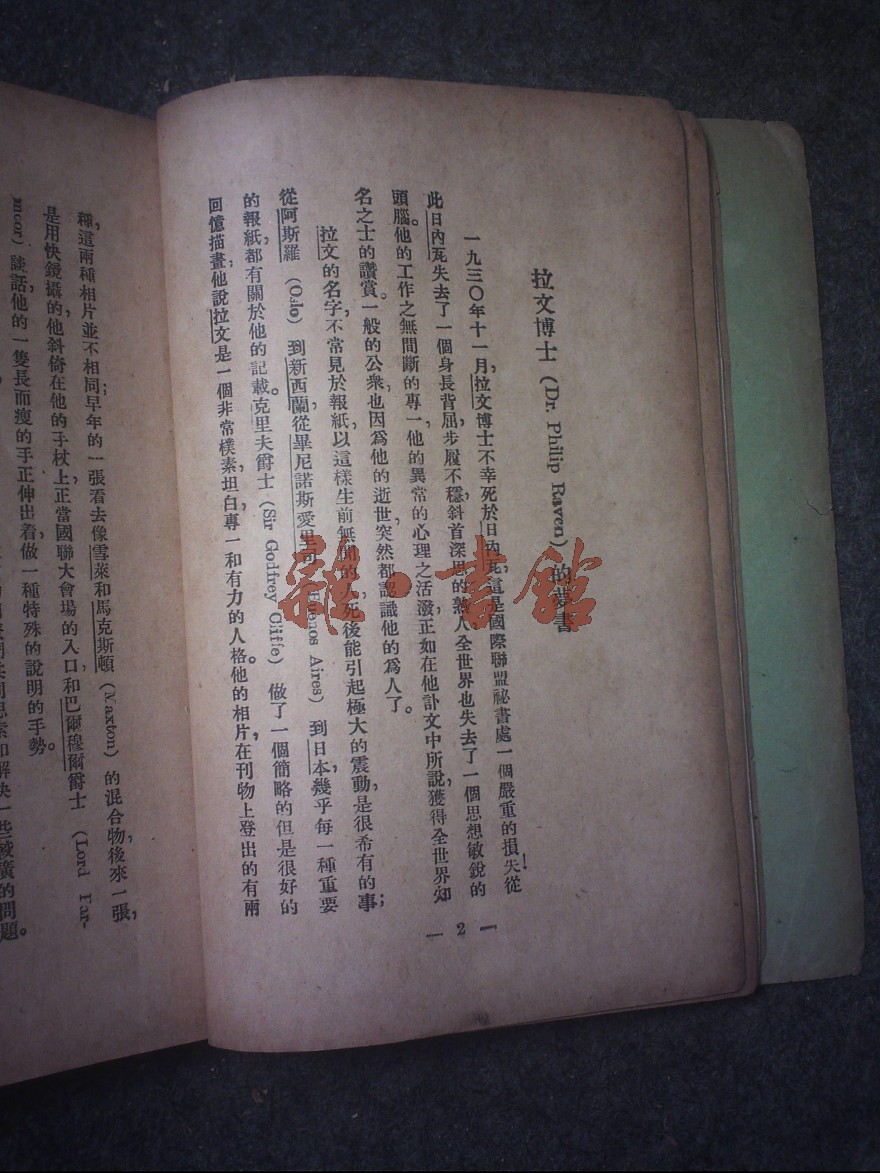 拉文博士 (Dr. Philip Raven) 的夢書
一九三〇年十一月,拉文博士不幸死於日內瓦,這是國際聯盟祕書處一個嚴重的損失!從
此日內瓦失去了一個身長背屈步履不穩,斜首深思的熟人,全世界也失去了一個思想敏銳的
頭腦。他的工作之無間斷的專一,他的異常的心理之活潑,正如在他訃文中所說,獲得全世界知
名之士的讚賞。一般的公衆,也因爲他的逝世,突然都認識他的爲人了。
拉文的名字,不常見於報紙,以這樣生前無聞的人,死後能引起極大的震動,是很希有的事;
從阿斯羅 (Oslo) 到新西蘭,從畢尼諾斯愛里 (Buenos Aires) 到日本,幾乎每一種重要
的報紙都有關於他的記載。克里夫爵士 (Sir Godfrey Cliffe) 做了一個簡略的但是很好的
回憶描畫,他說拉文是一個非常樸素,坦白,專一和有力的人格。他的相片,在刊物上登出的有兩
— 2 —
種,這兩種相片並不相同;早年的一張看去像雪萊和馬克斯頓 (Maxton) 的混合物,後來一張,
是用快鏡攝的,他斜倚在他的手杖上,正當國聯大會場的入口,和巴爾穆爾爵士 (Lord Par-
moor) 談話,他的一隻長而瘦的手正伸出着做一種特殊的說明的手勢。
思索和解決一些較廣的問題。
雜·書館